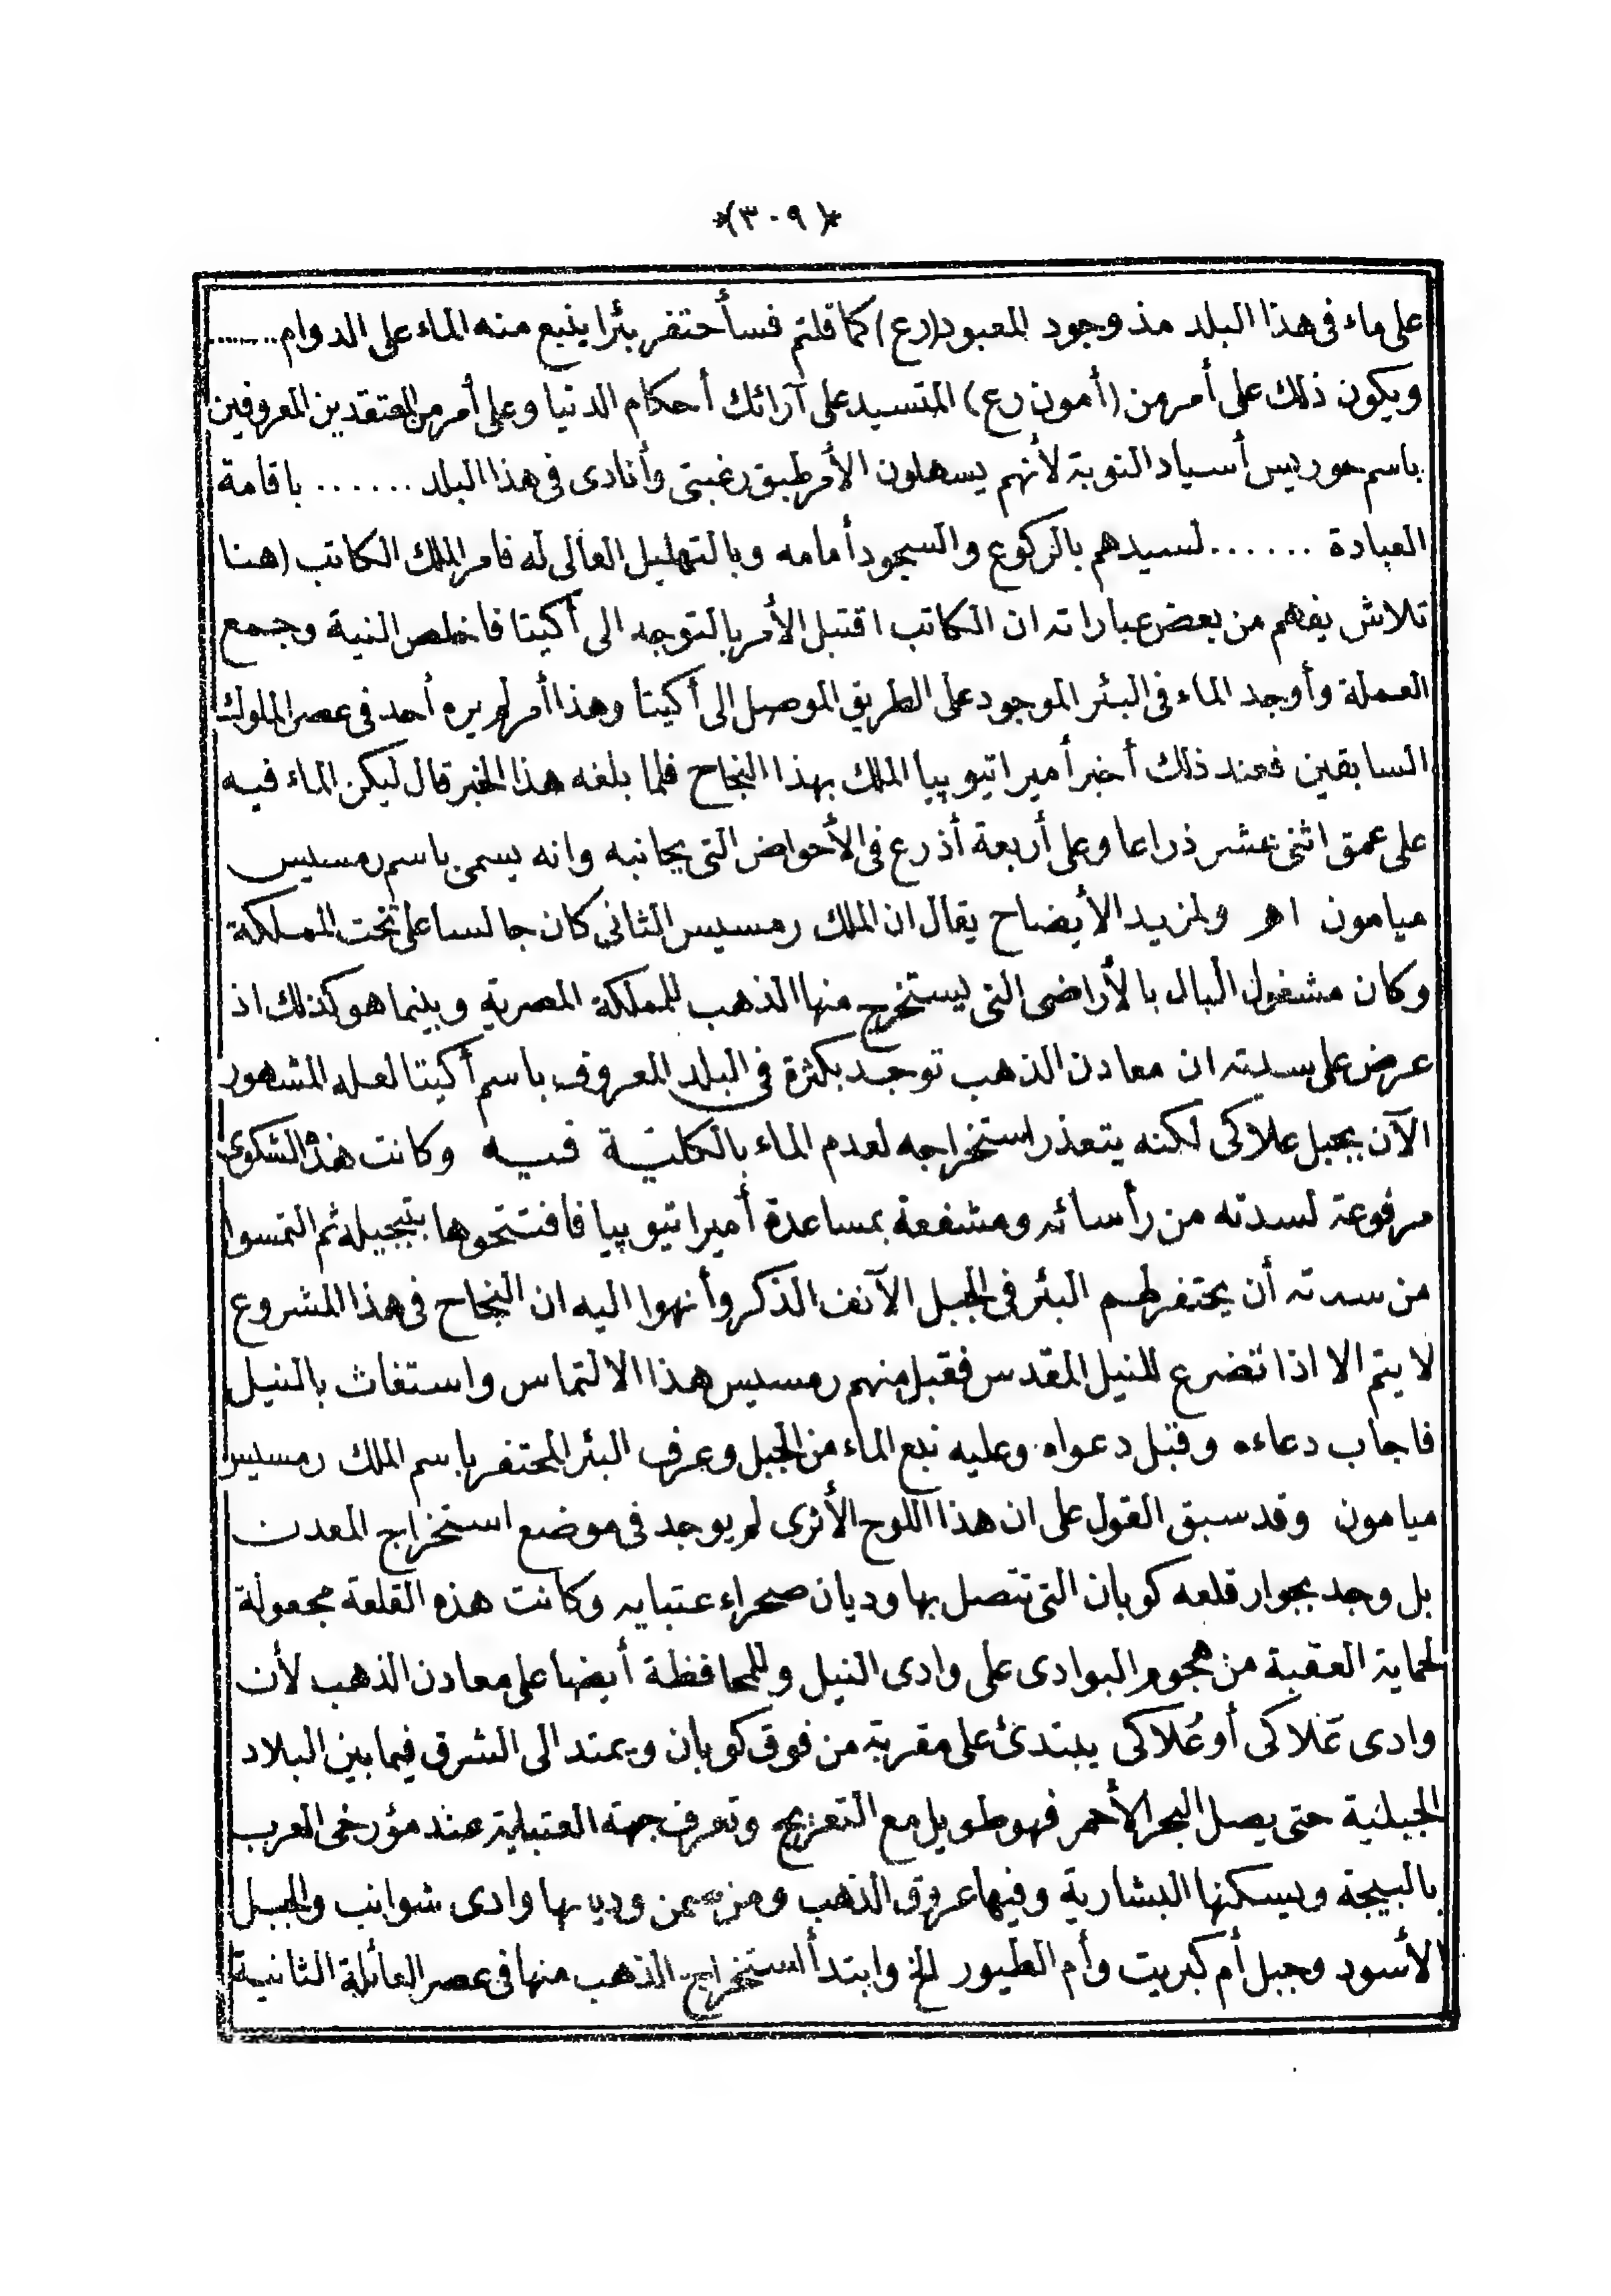 *(٣٠٩)*
على ماء فى هذا البلد مذ وجود المعبود (رع) كما قلتم فسأحتفر بئرا ينبع منه الماء على الدوام........
ويكون ذلك على أمر من (أمون رع) المتسيد على آرائك أحكام الدنيا وعلى أمر من المعتقدين المعروفين
باسم حوريس أسياد النوبة لأنهم يسهلون الأمر طبق رغبتى وأنادى فى هذا البلد ...... باقامة
العبادة ...... لسيدهم بالركوع والسجود أمامه وبالتهليل العالى له فامر الملك الكاتب (هنا
تلاش يفهم من بعض عباراته ان الكاتب اقتبل الأمر بالتوجه الى أكيتا فاخلص النية وجمع
العملة وأوجد الماء فى البئر الموجود على الطريق الموصل الى أكيتا وهذا أمر لم يره أحد فى عصر الملوك
السابقين فعند ذلك أخبر أمير اتيوپيا الملك بهذا النجاح فلما بلغه هذا الخبر قال ليكن الماء فيه
على عمق اثنى عشر ذراعا وعلى أربعة أذرع فى الأحواض التى بجانبه وانه يسمى باسم رمسيس
ميامون اهـ ولمزيد الأيضاح يقال ان الملك رمسيس الثانى كان جالسا على تخت المملكة
وكان مشغول البال بالأراضى التى يستخرج منها الذهب للمملكة المصرية وبينما هو كذلك اذ
عرض على سدته ان معادن الذهب توجد بكثرة فى البلد المعروف باسم أكيتا لعله المشهور
الآن بجبل علاكى لكنه يتعذر استخراجه لعدم الماء بالكلية فيه وكانت هذه الشكوى
مرفوعة لسدته من رأسائه ومشفعة بمساعدة أمير اتيوپيا فافتتحوها بتبجيله ثم التمسوا
من سدته أن يحتفر لهم البئر فى الجبل الآنف الذكر وأنهوا اليه ان النجاح فى هذا المشروع
لا يتم الا اذا تضرع للنيل المقدس فقبل منهم رمسيس هذا الالتماس واستغاث بالنيل
فاجاب دعاءه وقبل دعواه وعليه نبع الماء من الجبل وعرف البئر المحتفر باسم الملك رمسيس
ميامون وقد سبق القول على ان هذا اللوح الأثرى لم يوجد فى موضع استخراج المعدن
بل وجد بجوار قلعه كوبان التى تتصل بها وديان صحراء عتبايه وكانت هذه القلعة مجعولة
لحماية العقبة من هجوم البوادى على وادى النيل وللمحافظة أيضا على معادن الذهب لأن
وادى عَلاكى أو عُلاكى يبتدئ على مقربة من فوق كوبان ويمتد الى الشرق فيما بين البلاد
الجبلية حتى يصل البحر الأحمر فهو طويل مع التعزيج وتعرف جهة العتبلية عند مؤرخى العرب
بالبيجة ويسكنها البشارية وفيها عروق الذهب ومن ضمن وديانها وادى شوانب والجبل
الأسود وجبل أم كبريت وأم الطيور الخ وابتدأ استخراج الذهب منها فى عصر العائلة الثانية